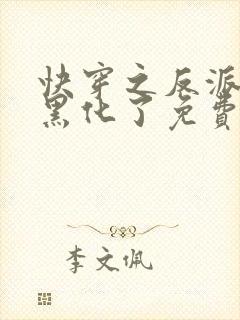 快穿之反派
黑化了免費
李文佩